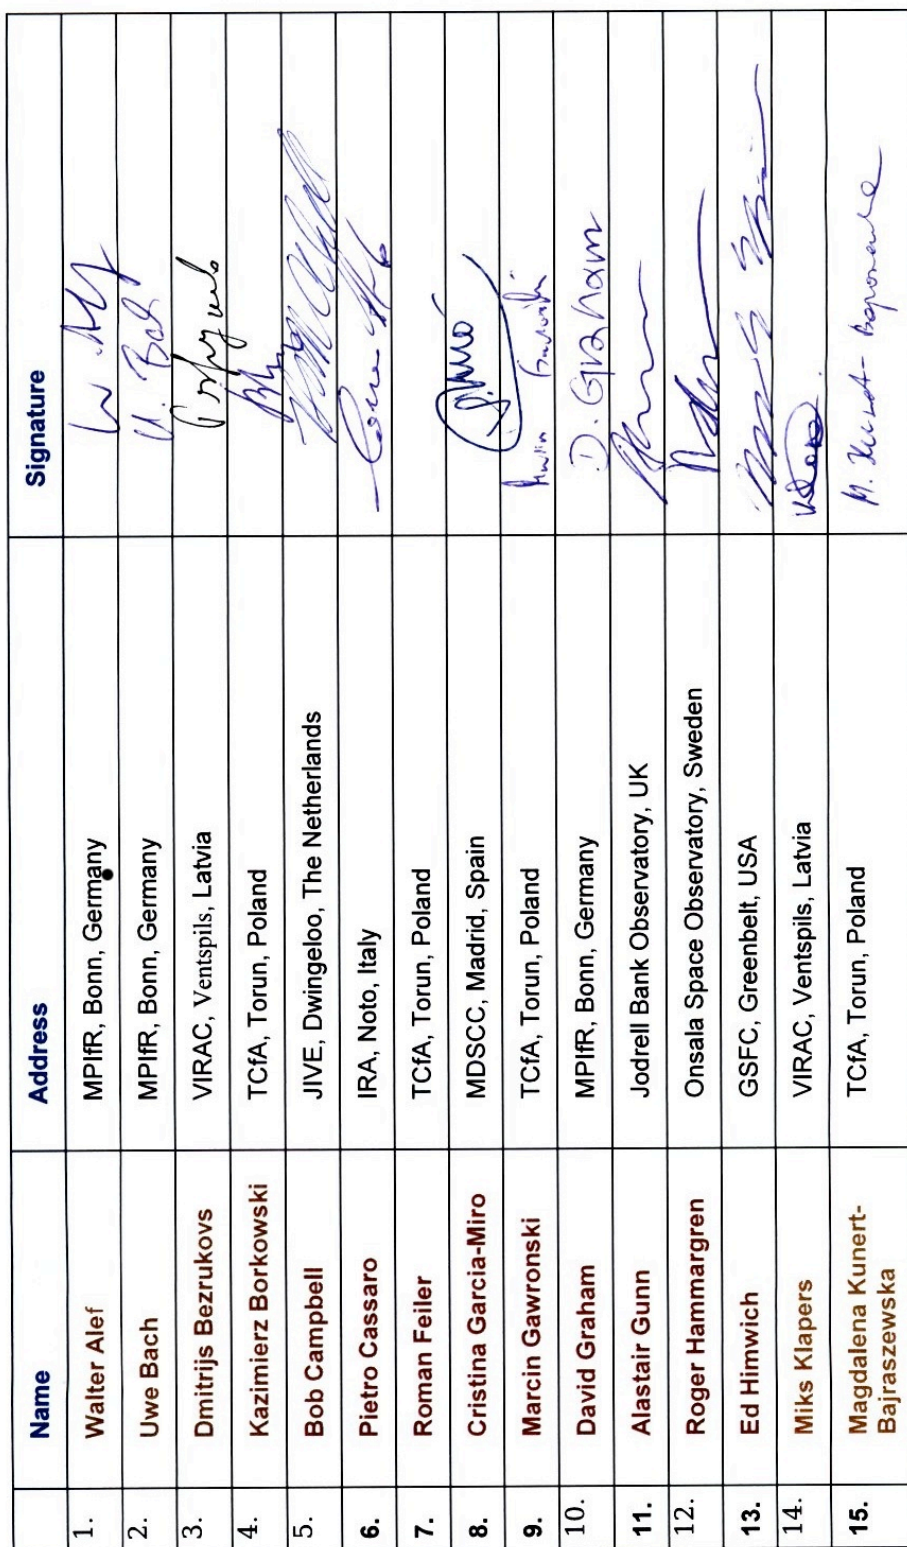 Name Address Signature
1. Walter Alef MPIfR, Bonn, Germany W. Alef
2. Uwe Bach MPIfR, Bonn, Germany U. Bach
3. Dmitrijs Bezrukovs VIRAC, Ventspils, Latvia
4. Kazimierz Borkowski TCfA, Torun, Poland
5. Bob Campbell JIVE, Dwingeloo, The Netherlands
6. Pietro Cassaro IRA, Noto, Italy
7. Roman Feiler TCfA, Torun, Poland
8. Cristina Garcia-Miro MDSCC, Madrid, Spain
9. Marcin Gawronski TCfA, Torun, Poland Marcin Gawroński
10. David Graham MPIfR, Bonn, Germany D. Graham
11. Alastair Gunn Jodrell Bank Observatory, UK
12. Roger Hammargren Onsala Space Observatory, Sweden
13. Ed Himwich GSFC, Greenbelt, USA
14. Miks Klapers VIRAC, Ventspils, Latvia
15. Magdalena Kunert- TCfA, Torun, Poland M. Kunert-
Bajraszewska